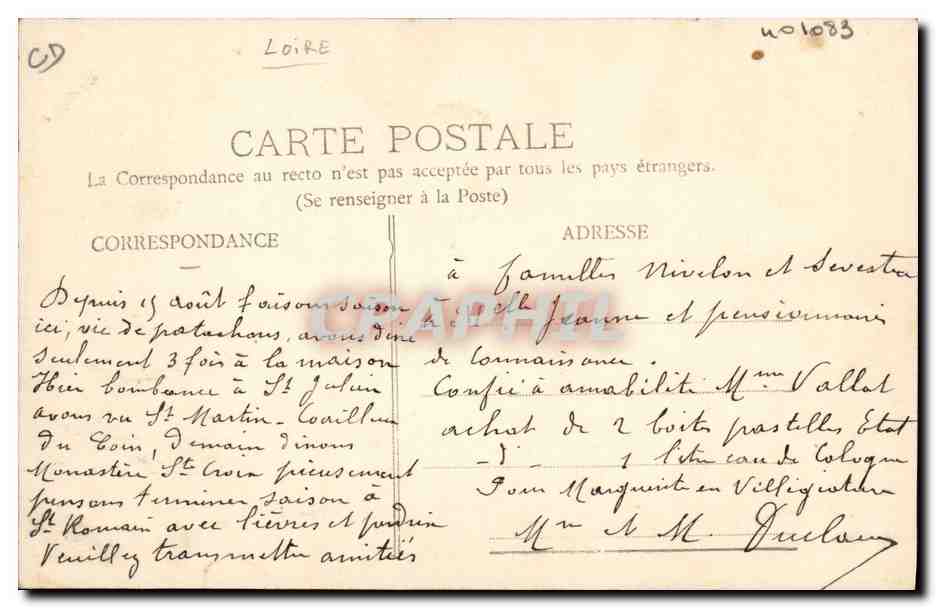 CD
LOIRE
401083
CARTE POSTALE
La Correspondance au recto n'est pas acceptée par tous les pays étrangers.
(Se renseigner à la Poste)
CORRESPONDANCE
Depuis 15 août faisons saison
ici, vie de patachons, avons diné
seulement 3 fois à la maison
Hier bombance à St Julien
avons vu St Martin - Coailleux
du Coin, demain dinons
Monastère Ste Croix pieusement
pensons terminer saison à
St Romain avec lièvres et perdrix
Veuillez transmettre amitiés
ADRESSE
à familles Nivelon et Sevestre
à Melle Jeanne et pensionnaires
de Connaissance.
Confié à amabilité Mme Vallat
achat de 2 boites pastelles Etat
- d° - 1 litre eau de Cologne
Pour Marguerite en Villégiature
M. Duclaux
CPAPHIL